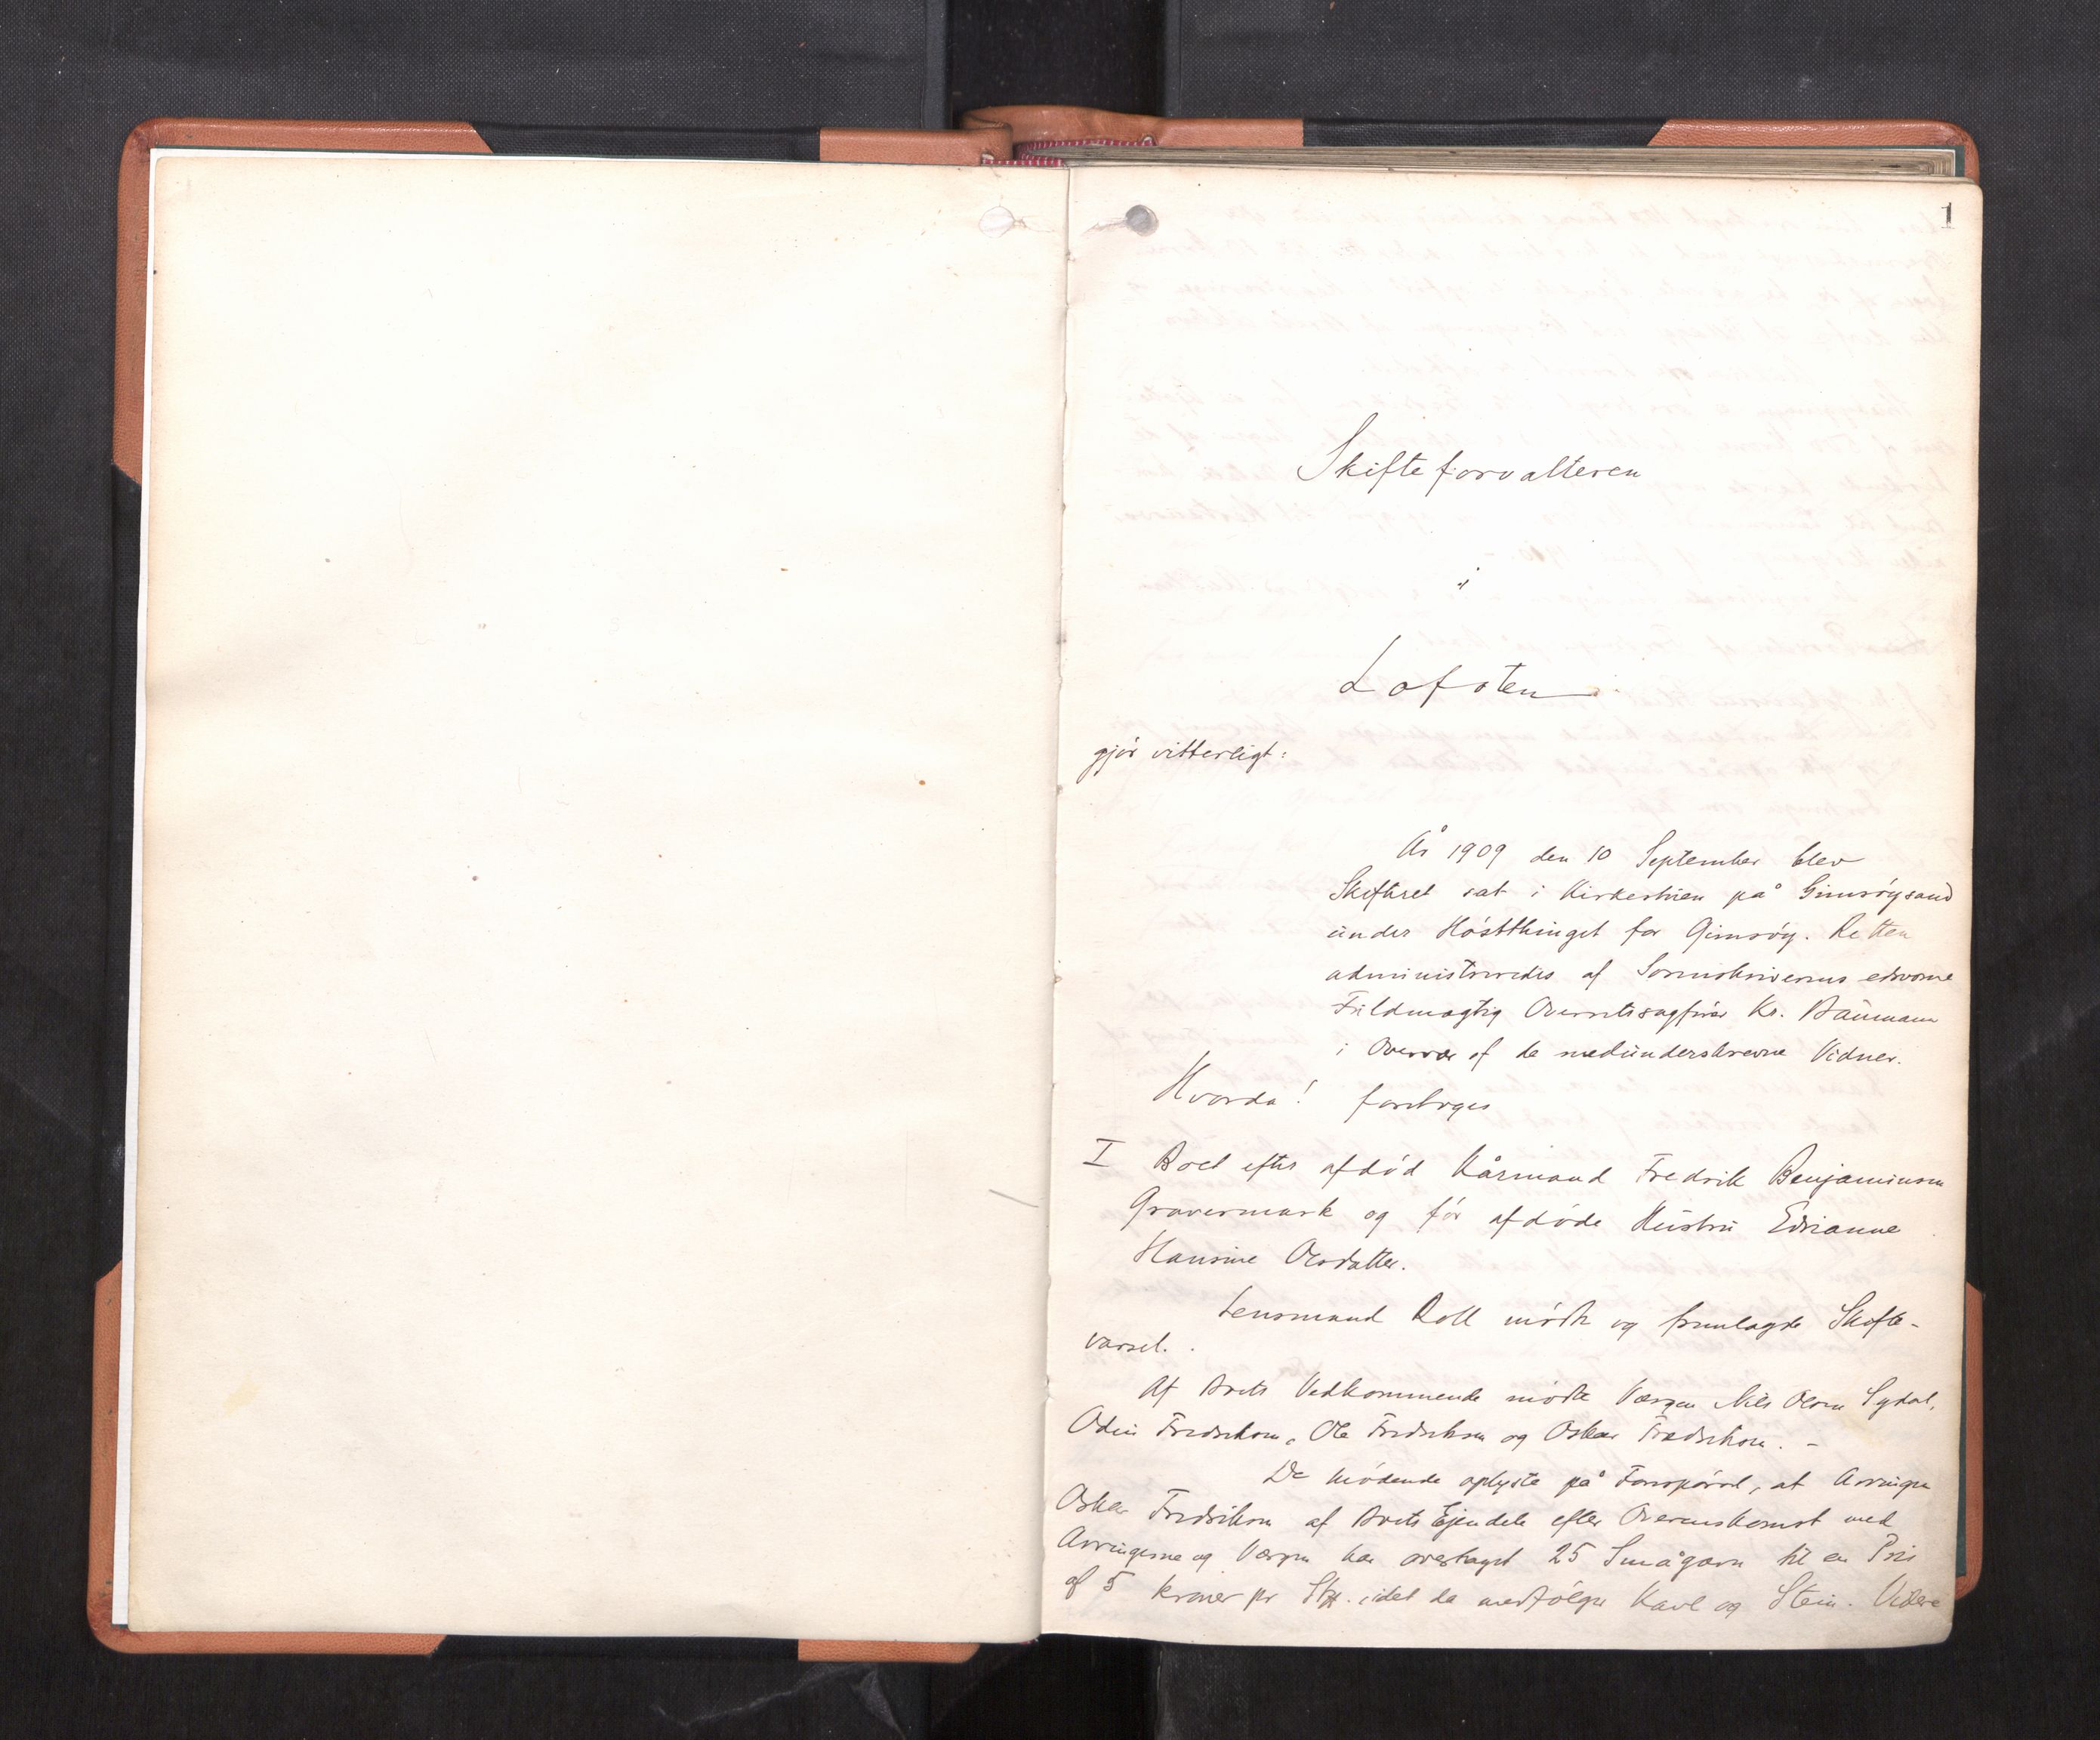 1
Skifteforvalteren
i
Lofoten
gjör vitterligt:
År 1909 den 10 September blev
Skifteret sat i Kirkestuen på Gimsöysand
under Höstthinget for Gimsöy. Retten
administreredes af Sorenskriverens edsvorne
Fuldmægtig Overretssagförer Kr. Baumann
i Overvær af de medunderskrevne Vidner.
Hvorda! foretoges
I Boet efter afdöd Kårmand Fredrik Benjaminsen
Gravermark og för afdöde Hustru Edrianne
Hansine Olsdatter.
Lensmand Roll mödte og fremlagde Skifte-
varsel.
Af Boets Vedkommende mödte Værgen Nils Olsen Sydal,
Odin Fredriksen, Ole Fredriksen og Oskar Fredriksen. -
De Mödende oplyste på Forespörsel, at Arvingen
Oskar Fredriksen af Boets Ejendele efter Overenskomst med
Arvingerne og Værgen har overtaget 25 Smågarn til en Pris
af 5 kroner pr Stk. idet da medfölger Kavl og Stein. Videre